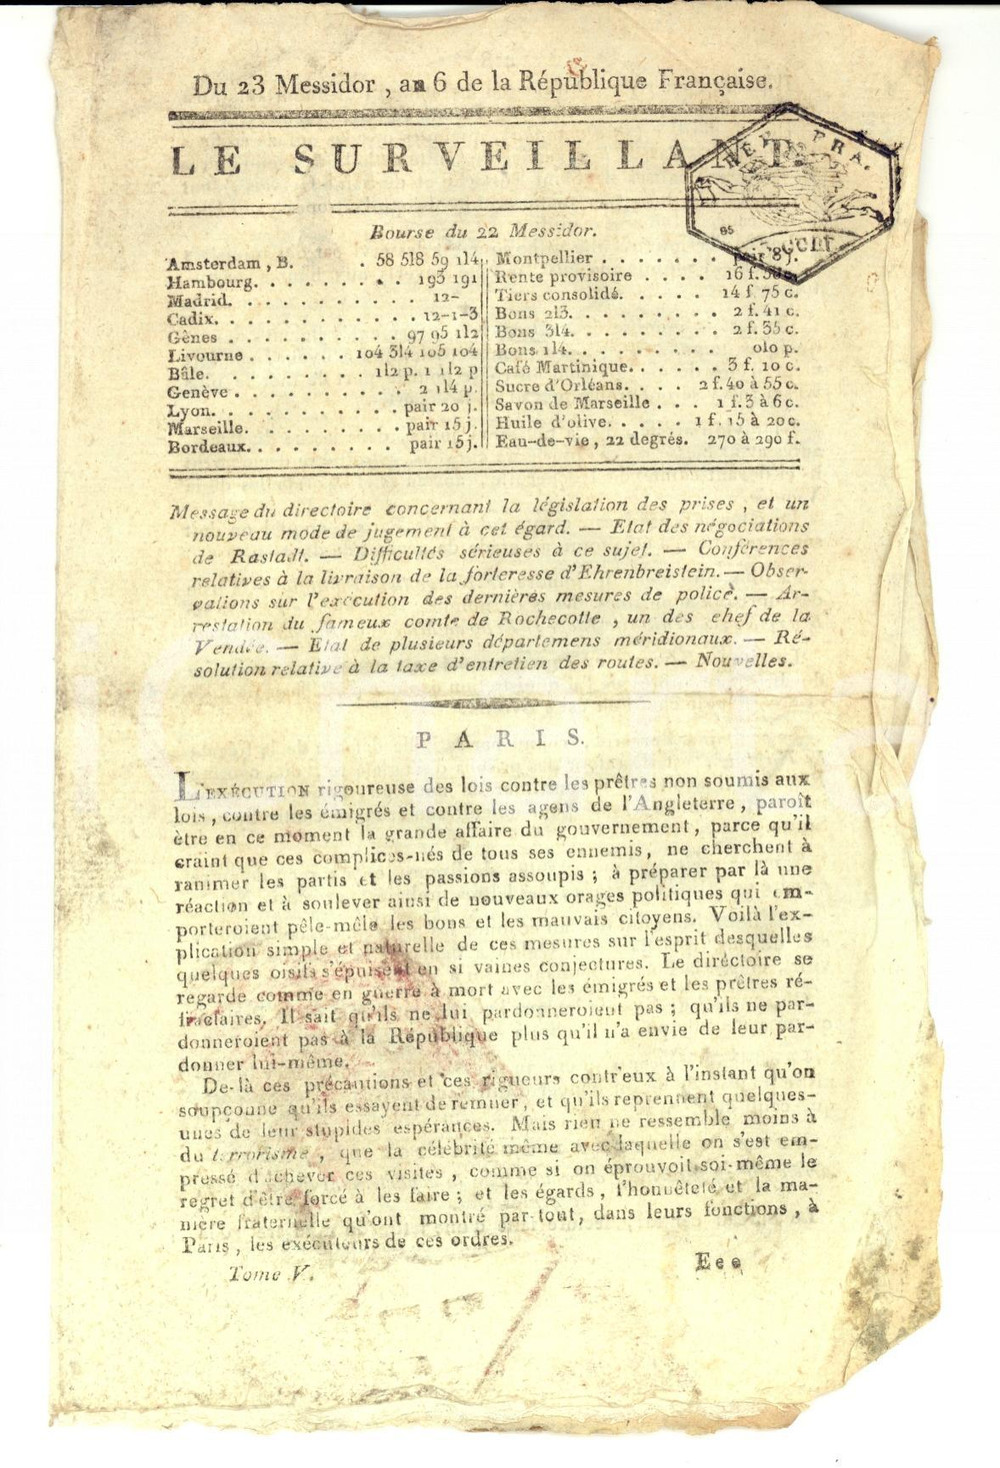 Du 23 Messidor , an 6 de la République Française.
LE SURVEILLANT.
RÉP. FRA.
Bourse du 22 Messidor.
Amsterdam , B. . 58 518 59 114
Hambourg. . . . . . . . . 193 191
Madrid. . . . . . . . . . . 12-
Cadix. . . . . . . . . . . . 12-1-3
Gênes . . . . . . . . . . 97 95 112
Livourne . . . . . . 104 314 105 104
Bâle. . . . . . . . . 112 p. 1 112 p
Genève . . . . . . . . . . 2 114 p.
Lyon. . . . . . . . . . . pair 20 j.
Marseille. . . . . . . . . pair 15 j.
Bordeaux. . . . . . . . . pair 15 j.
Montpellier . . . . . . . . pair 8 j.
Rente provisoire . . . . 16 f.
Tiers consolidé. . . . . . 14 f 75 c.
Bons 213. . . . . . . . . 2 f. 41 c.
Bons 314. . . . . . . . . 2 f. 35 c.
Bons 114. . . . . . . . . 010 p.
Café Martinique. . . . . . 3 f. 10 c.
Sucre d'Orléans. . . . 2 f. 40 à 55 c.
Savon de Marseille . . . 1 f. 3 à 6 c.
Huile d'olive. . . . . 1 f. 15 à 20 c.
Eau-de-vie , 22 degrés. 270 à 290 f.
Message du directoire concernant la législation des prises , et un
nouveau mode de jugement à cet égard. — Etat des négociations
de Rastadt. — Difficultés sérieuses à ce sujet. — Conférences
relatives à la livraison de la forteresse d'Ehrenbreistein. — Obser-
vations sur l'exécution des dernières mesures de police. — Ar-
restation du fameux comte de Rochecotte , un des chef de la
Vendée. — Etat de plusieurs départemens méridionaux. — Ré-
solution relative à la taxe d'entretien des routes. — Nouvelles.
PARIS.
L'EXÉCUTION rigoureuse des lois contre les prêtres non soumis aux
lois , contre les émigrés et contre les agens de l'Angleterre , paroît
être en ce moment la grande affaire du gouvernement , parce qu'il
craint que ces complices-nés de tous ses ennemis, ne cherchent à
ranimer les partis et les passions assoupis ; à préparer par là une
réaction et à soulever ainsi de nouveaux orages politiques qui em-
porteroient pêle-mêle les bons et les mauvais citoyens. Voilà l'ex-
plication simple et naturelle de ces mesures sur l'esprit desquelles
quelques oisifs s'épuisent en si vaines conjectures. Le diréctoire se
regarde comme en guerre à mort avec les émigrés et les prêtres ré-
fractaires. Il sait qu'ils ne lui pardonneroient pas ; qu'ils ne par-
donneroient pas à la République plus qu'il n'a envie de leur par-
donner lui-même.
De-là ces précautions et ces rigueurs contr'eux à l'instant qu'on
soupçonne qu'ils essayent de remuer , et qu'ils reprennent quelques-
unes de leur stupides espérances. Mais rien ne ressemble moins à
du terrorisme , que la célébrité même avec laquelle on s'est em-
pressé d'achever ces visites , comme si on éprouvoit soi-même le
regret d'être forcé à les faire ; et les égards , l'honnêteté et la ma-
nière fraternelle qu'ont montré par-tout, dans leurs fonctions , à
Paris , les exécuteurs de ces ordres.
Tome V. Eee